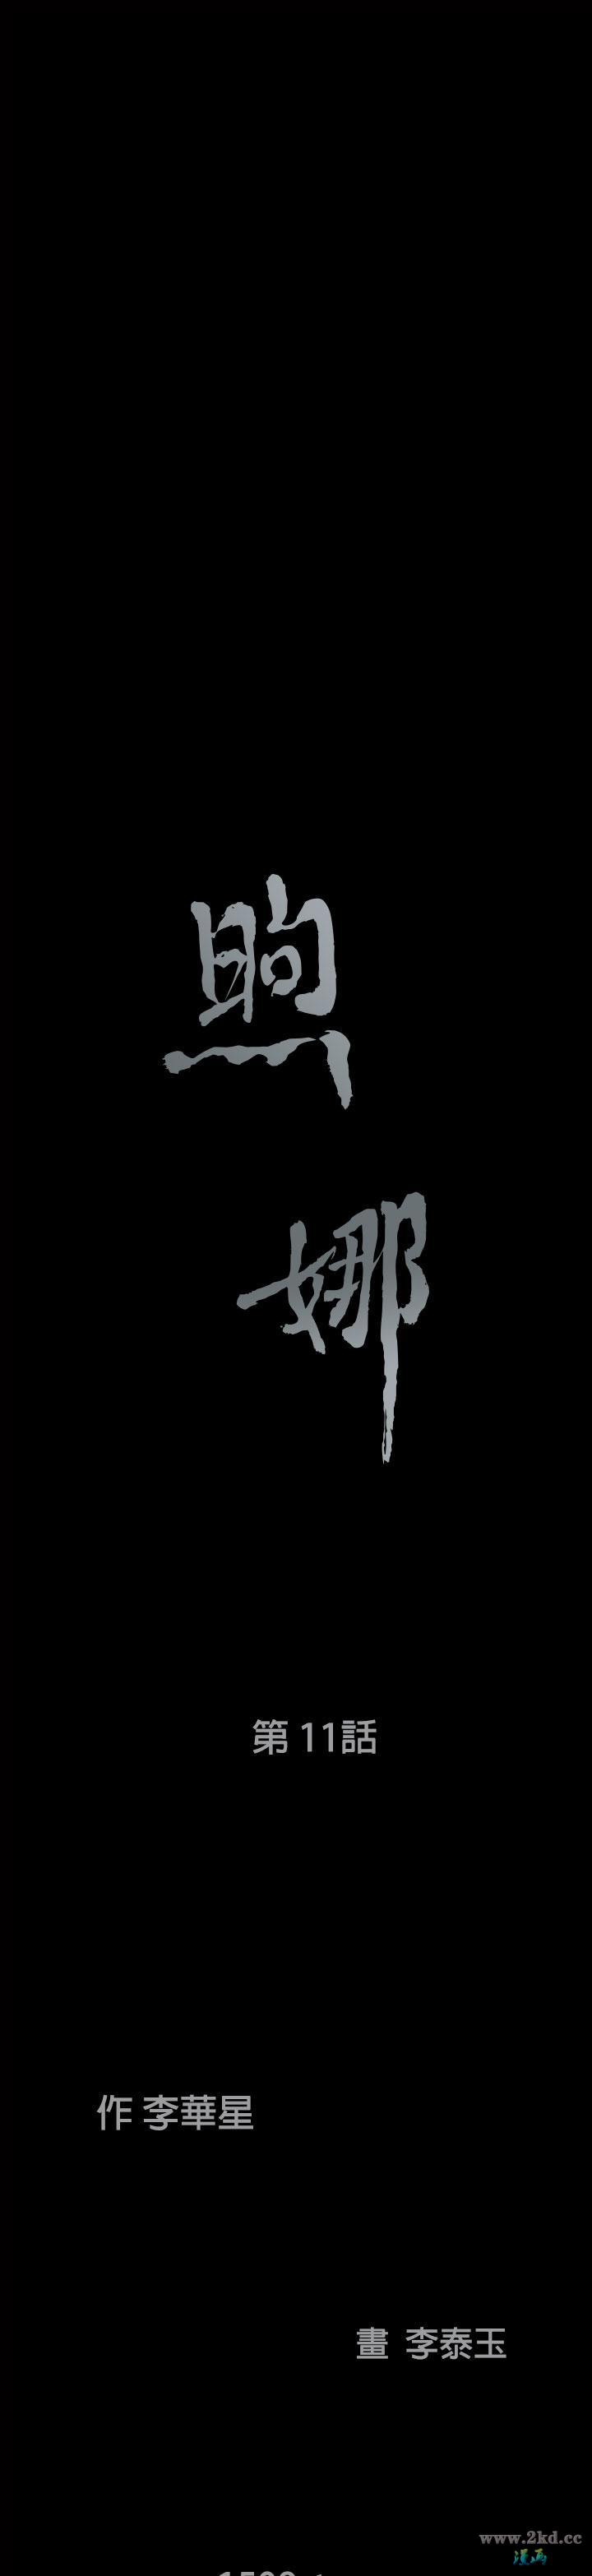 煦
娜
第 11話
作 李華星
畫 李泰玉
www.2kd.cc
漫画